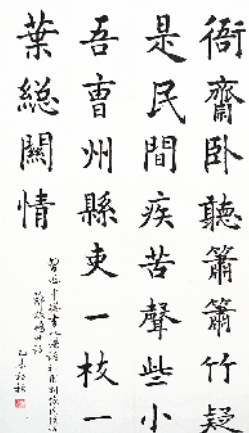 衙齋卧聽簫簫竹疑
是民間疾苦聲些小
吾曹州縣吏一枝一
葉総關情
乙未初秋